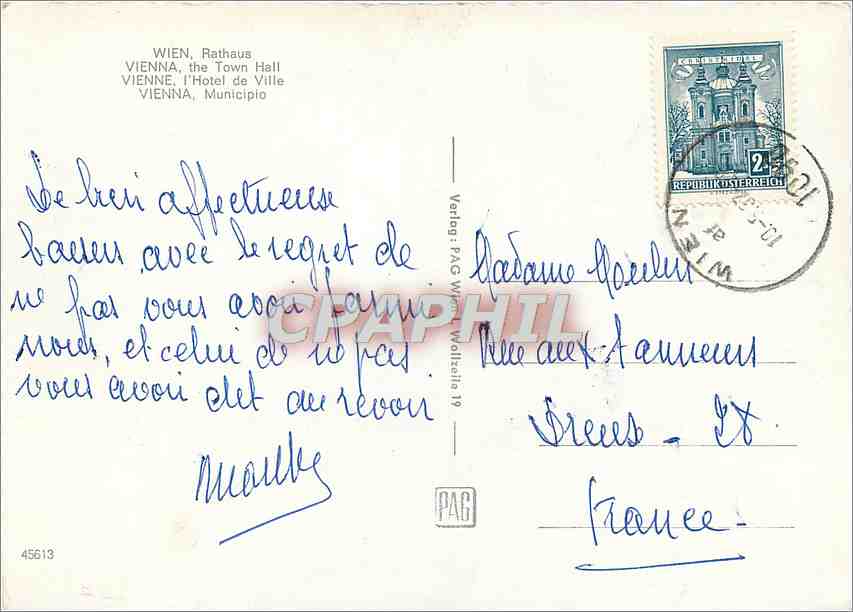 WIEN, Rathaus
VIENNA, the Town Hall
VIENNE, l'Hotel de Ville
VIENNA, Municipio
affectueuse
avec le regret de
ne pas vous avoir parmi
nous, et celui de ne pas
vous avoir dit au revoir
45613
Verlag: PAG Wien I, Wollzeile 19
PAG
CPAPHIL
CHRISTKINDL
2
REPUBLIK ÖSTERREICH
WIEN
Madame
Rue aux Tanneurs
Dreux -
France -